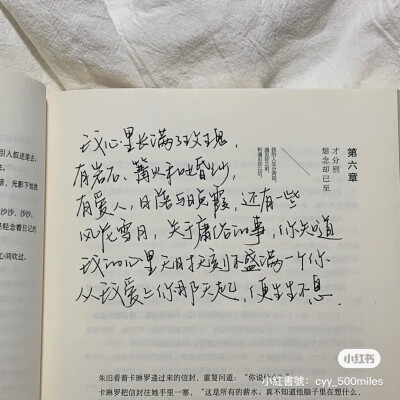 我心里长满了玫瑰，
有岩石、篝火和婚纱，
有爱人，日落与晚霞，还有一些
风花雪月，关于庸俗的事，你知道
我的心里无时无刻不盛满一个你
从我爱上你那天起，便生生不息.
第六章
才分别
想念却已至
引人叙述逝去，
暗，光影下她竟
沙沙，沙沙，
轻念着日记的
心间吹过。
朱旧看着卡琳罗递过来的信封，重复问道：“你说什么？”
卡琳罗把信封往她手里一塞，“这是所有的薪水。真不知道他脑子里在想什么，
小红书
小红書號：cyy_500miles